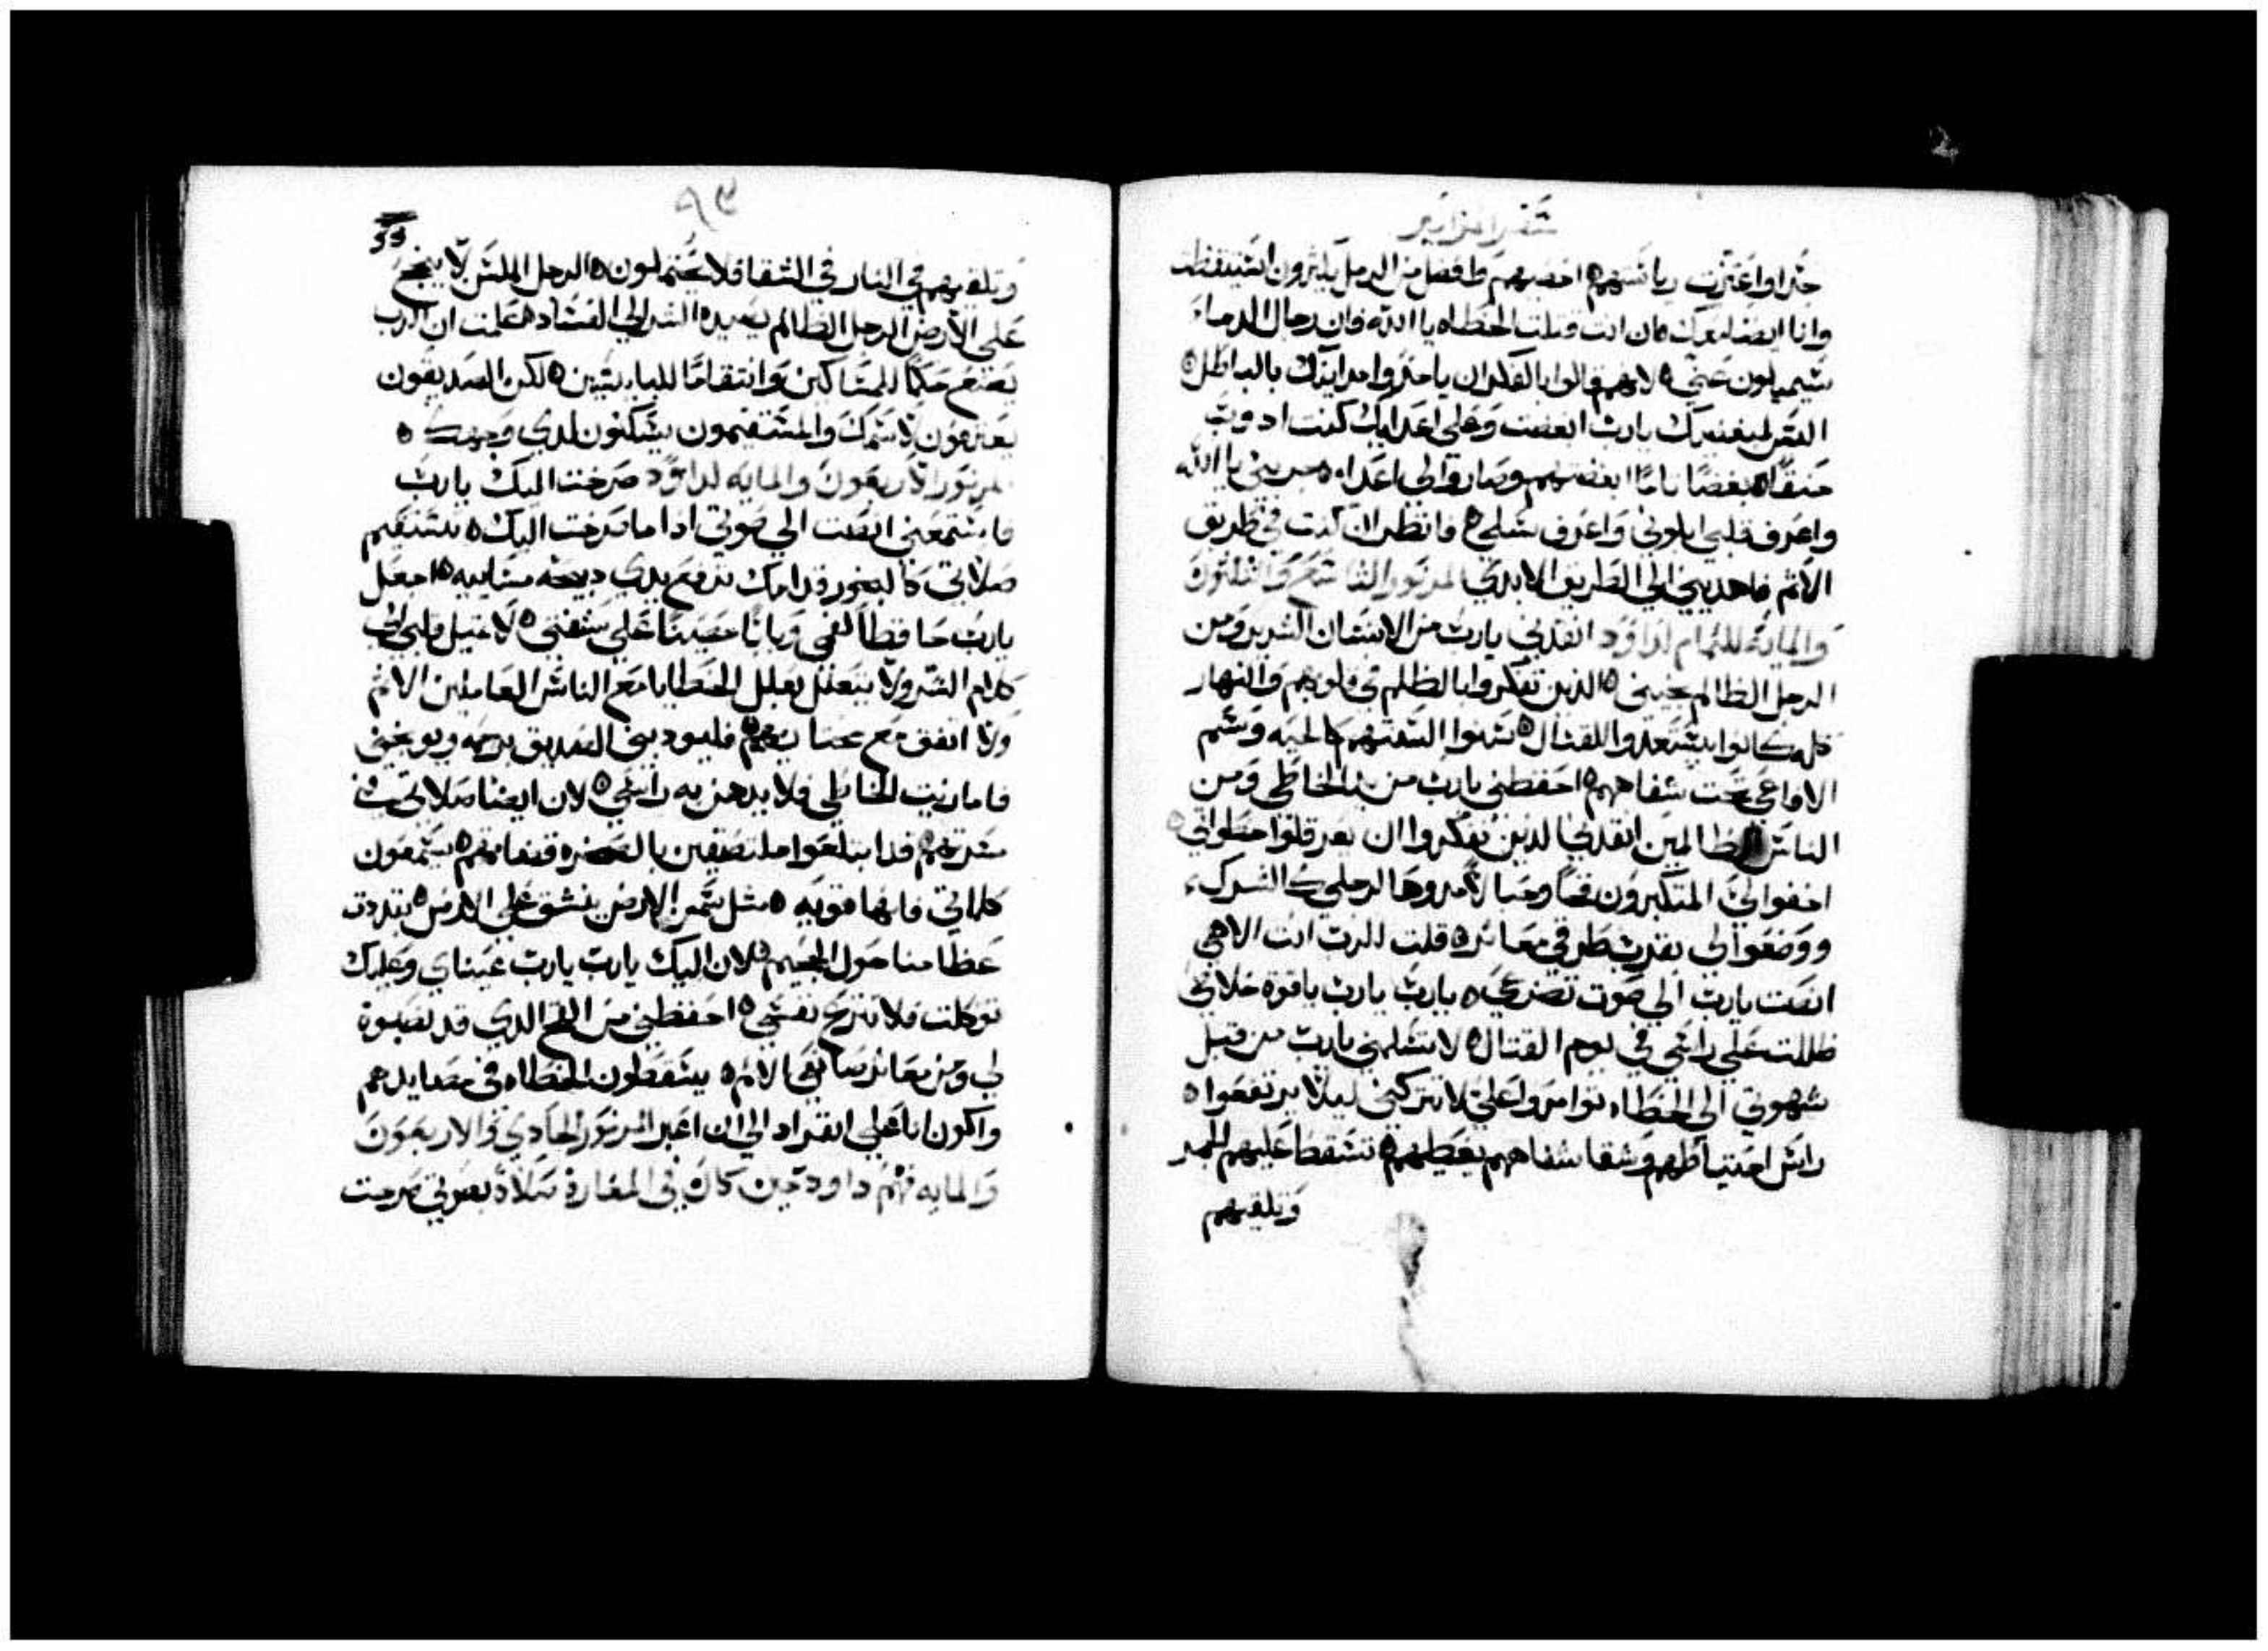 سفر المزامير
جدا واعتزت رياستهم احصيهم وافضل من الرمل يكثرون استيقظت
وانا ايضا معك ان انت قتلت الخطاه يا الله فان رجال الدماء
سيميلون عني لانهم قالوا بالفكر ان ياخذوا مداينك بالباطل
اليس لمبغضيك يارب ابغضت وعلي اعدايك كنت ادوب
حنقا بغضا تاما ابغضتهم وصاروا لي اعداء جربني يا الله
واعرف قلبي ابلوني واعرف سبلي وانظر ان كنت في طريق
الاثم فاهديني الي الطريق الابدي المزمور التاسع والثلثون
والمايه للتمام لداوود انقدني يارب من الانسان الشرير ومن
الرجل الظالم نجيني الدين تفكروا بالظلم في قلوبهم والنهار
كله كانوا يستعدوا للقتال سنوا السنتهم كالحيه وسم
الافاعي تحت شفاههم احفظني يارب من يد الخاطي ومن
الناس الظالمين انقدني الدين تفكروا ان يعرقلوا خطواتي
اخفوا لي المتكبرون فخا وحبالا مدوها لرجلي كالشرك
ووضعوا لي بقرب طرقي معاتر قلت للرب انت الاهي
انصت يارب الي صوت تضرعي يارب يارب ياقوة خلاصي
ظللت علي راسي في يوم القتال لا تسلمني يارب من قبل
شهوتي الي الخطاه توامروا علي لا تتركني ليلا يرتفعوا
راس احتياطهم وشقا شفاههم يغطيهم تسقط عليهم الجمر
وتلقيهم
٩٣
55
وتلقيهم في النار في الشقا فلا يحتملون الرجل الملسن لا ينجح
علي الارض الرجل الظالم يصيده الشر الي الفساد علمت ان الرب
يصنع حكما للمساكين وانتقاما للبايسين لكن الصديقون
يعترفون لاسمك والمستقيمون يسكنون لدي وجهك
المزمور الاربعون والمايه لداوود صرخت اليك يارب
فاستمعني انصت الي صوتي ادا ما صرخت اليك تستقيم
صلاتي كالبخور قدامك ترفع يدي دبيحه مسايه اجعل
يارب حافظا لفمي وبابا حصينا علي شفتي لا تميل قلبي الي
كلام الشر ولا يتعلل بعلل الخطايا مع الناس العاملين الاثم
ولا اتفق مع مختاريهم فليودبني الصديق برحمه ويوبخني
فاما زيت الخاطي فلا يدهن به راسي لان ايضا صلاتي في
مسرتهم قد ابتلعوا ملتصقين بالصخره قضاتهم يسمعون
كلماتي فانها قويه مثل سمن الارض ينشق علي الارض تبددت
عظامنا حول الجحيم لان اليك يارب يارب عيناي وعليك
توكلت فلا تنزع نفسي احفظني من الفخ الدي قد نصبوه
لي ومن معاتر صانعي الاثم يسقطون الخطاه في مصايدهم
واكون انا علي انفراد الي ان اعبر المزمور الحادي والاربعون
والمايه فهم داود حين كان في المغارة صلاة بصوتي صرخت